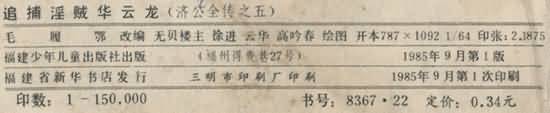 追捕淫贼华云龙(济公全传之五)
毛履鄂 改编 无贝楼主 徐进 云华 高吟春 绘图 开本787×1092 1/64 印张:2.1875
福建少年儿童出版社出版 (福州得贵巷27号) 1985年9月第1版
福建省新华书店发行 三明市印刷厂印刷 1985年9月第1次印刷
印数:1-150.000 书号:8367·22 定价:0.34元